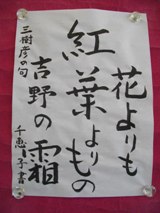 花よりも
紅葉よりもの
吉野の霜
三樹彦の句
千恵子書